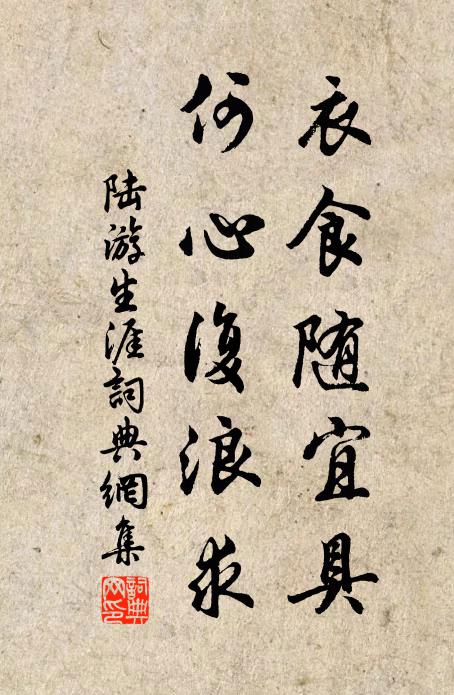 衣食随宜具
何心復浪求
陆游生涯詞典網集
詞典
网印